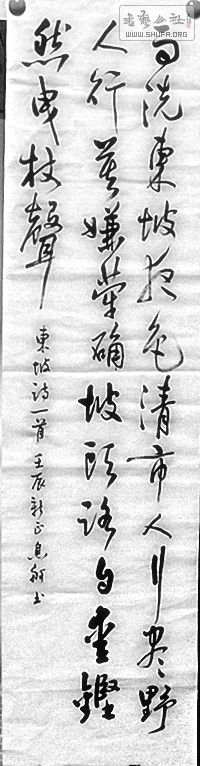 雨洗東坡夜色清市人行盡野
人行莫嫌犖确坡頭路自愛鏗
然曳杖聲
東坡詩一首壬辰新正息舟書
書藝公社
WWW.SHUFA.ORG